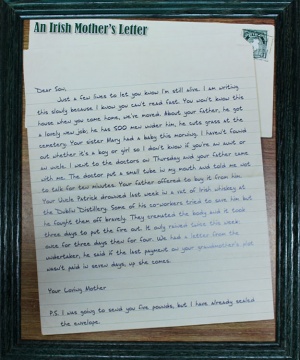 An Irish Mother's Letter
Dear Son,
Just a few lines to let you know I'm still alive. I am writing
this slowly because I know you can't read fast. You won't know the
house when you come home, we've moved. About your father, he got
a lovely new job; he has 500 men under him, he cuts grass at the
cemetery. Your sister Mary had a baby this morning. I haven't found
out whether it's a boy or girl so I don't know if you're an aunt or
an uncle. I went to the doctors on Thursday and your father came
with me. The doctor put a small tube in my mouth and told me not
to talk for ten minutes. Your father offered to buy it from him.
Your Uncle Patrick drowned last week in a vat of Irish whiskey at
the Dublin Distillery. Some of his co-workers tried to save him but
he fought them off bravely. They cremated the body and it took
three days to put the fire out. It only rained twice this week,
once for three days then for four. We had a letter from the
undertaker, he said if the last payment on your grandmother's plot
wasn't paid in seven days, up she comes.
Your Loving Mother
P.S. I was going to send you five pounds, but I have already sealed
the envelope.